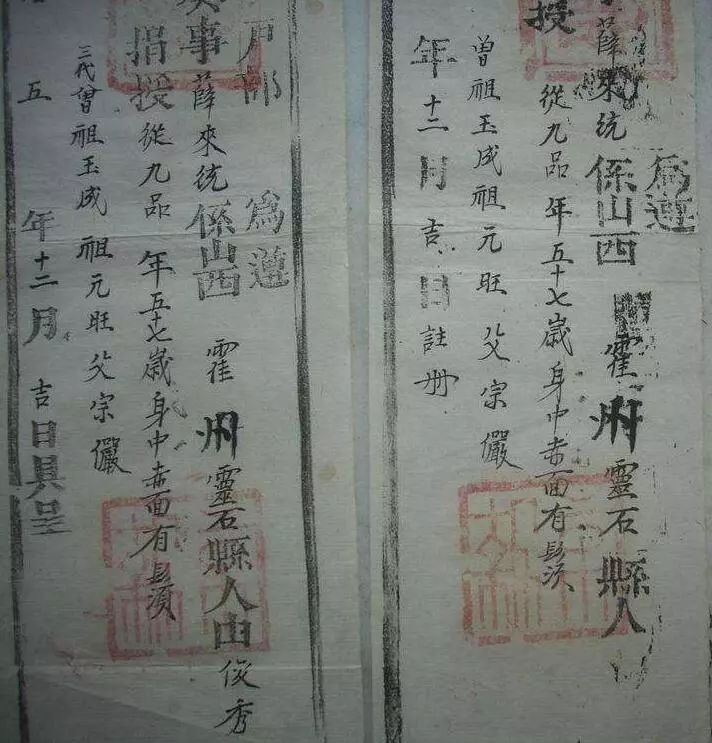 授
薛來統係山西霍州靈石縣人
爲遵
從九品年五十七歲身中赤面有鬚
曾祖玉成祖元旺父宗儼
年十二月吉日註冊
户部
爲遵
事薛來統係山西霍州靈石縣人由俊秀
捐授從九品年五十七歲身中赤面有鬚
三代曾祖玉成祖元旺父宗儼
五年十二月吉日具呈